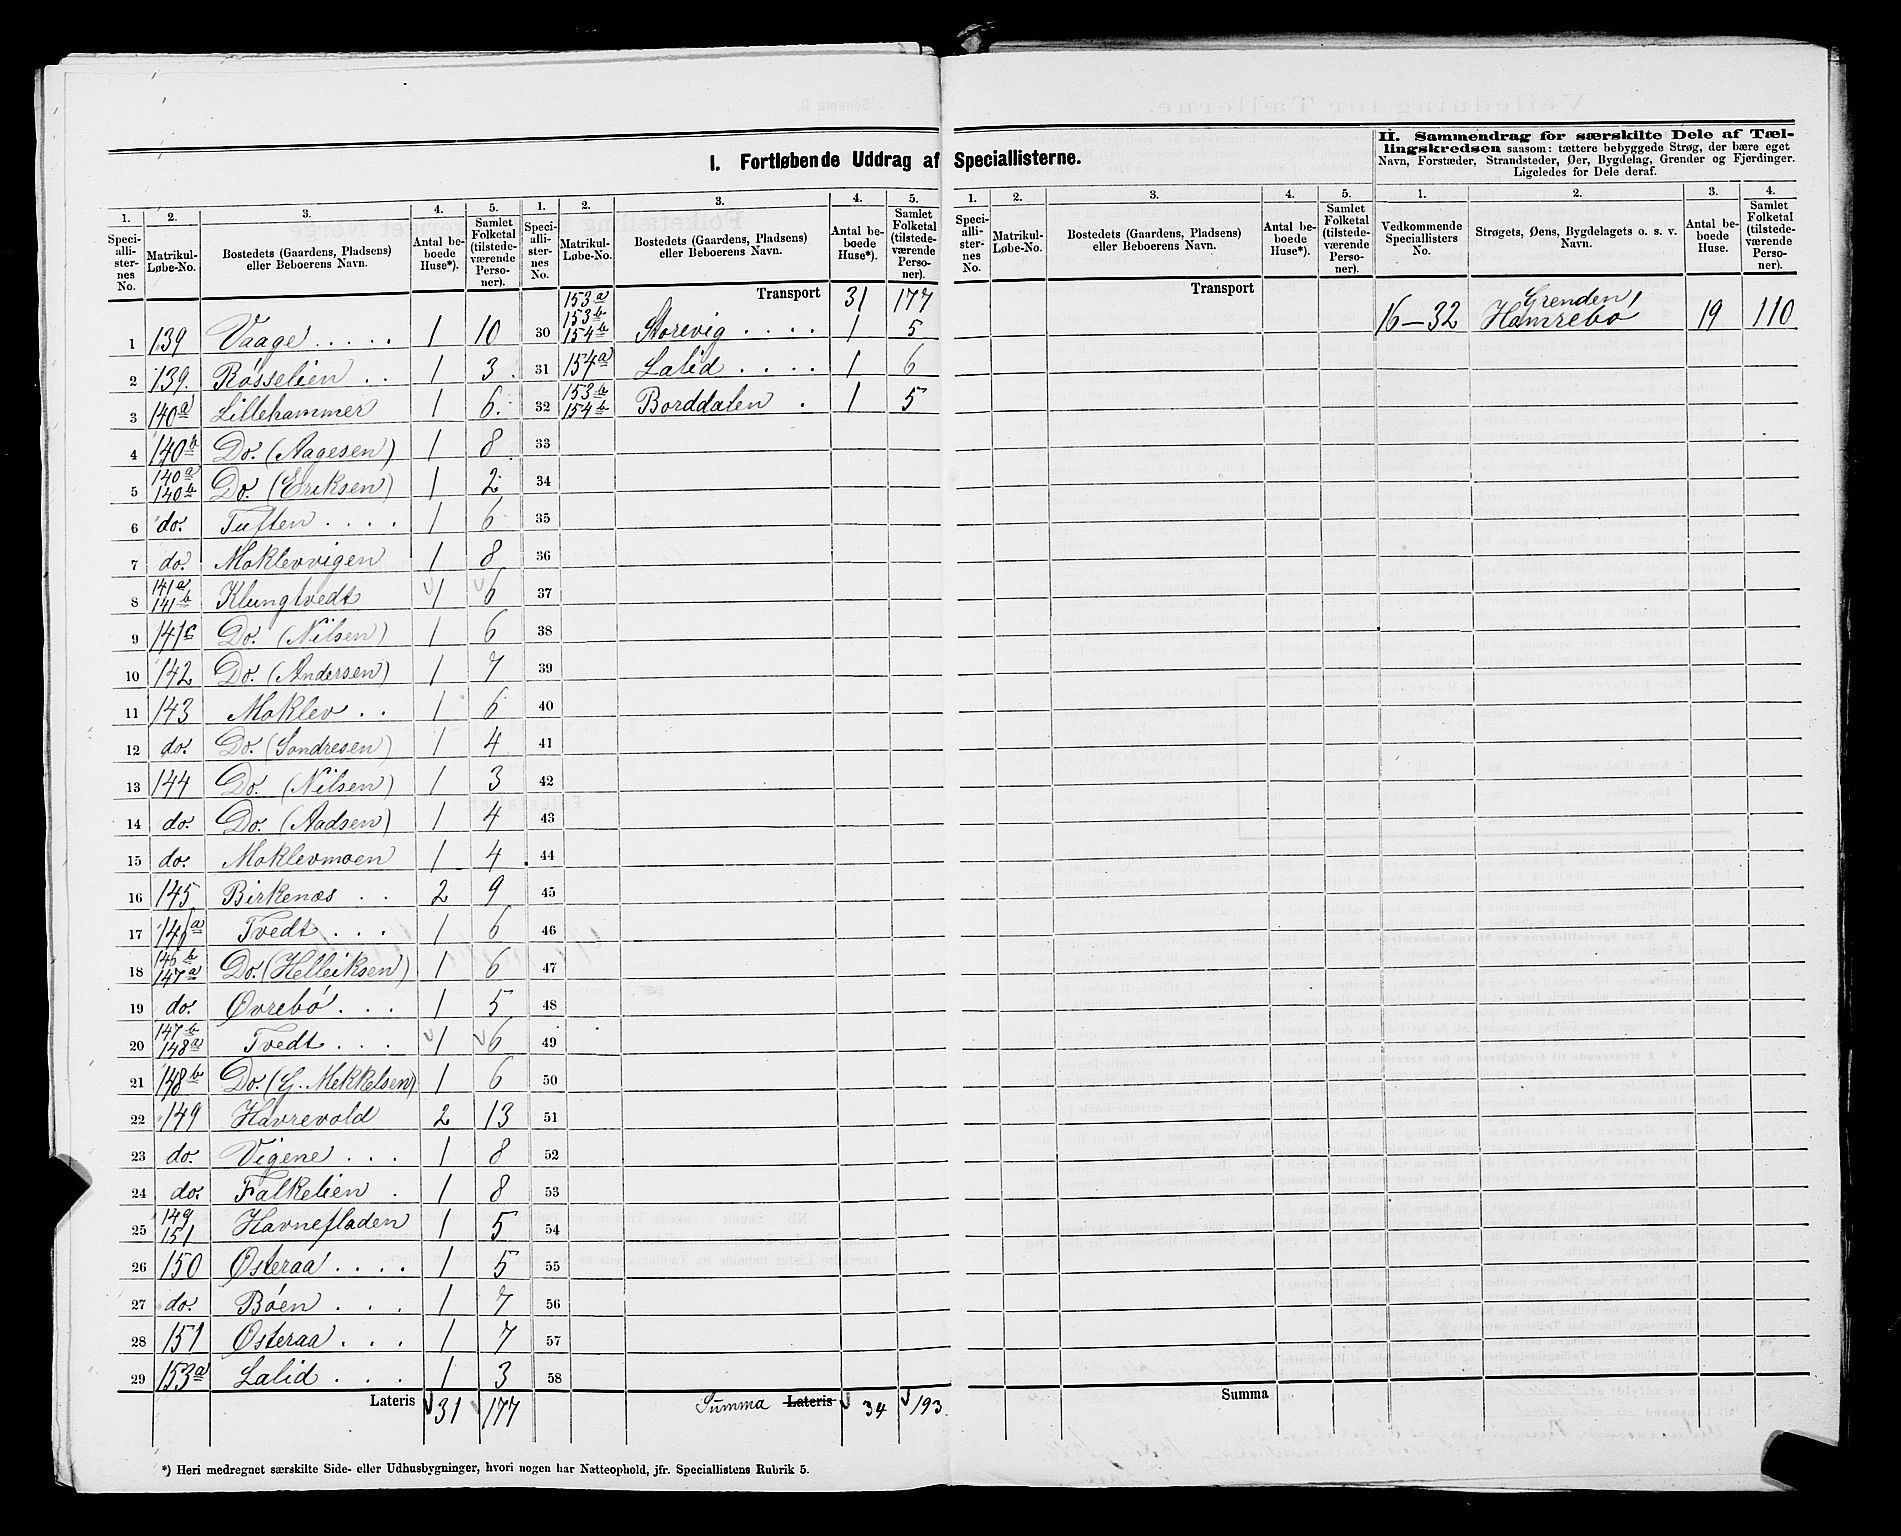 I. Fortløbende Uddrag af Speciallisterne.
II. Sammendrag for særskilte Dele af Tæl-
lingskredsen saasom: tættere bebyggede Strøg, der bære eget
Navn, Forstæder, Strandsteder, Øer, Bygdelag, Grender og Fjerdinger.
Ligeledes for Dele deraf.
1. 2. 3. 4. 5. 1. 2. 3. 4. 5. 1. 2. 3. 4. 5. 1. 2. 3. 4.
Speciallisternes No. Matrikul-Løbe-No. Bostedets (Gaardens, Pladsens) eller Beboerens Navn. Antal beboede Huse*). Samlet Folketal (tilstedeværende Personer).
Speciallisternes No. Matrikul-Løbe-No. Bostedets (Gaardens, Pladsens) eller Beboerens Navn. Antal beboede Huse*). Samlet Folketal (tilstedeværende Personer).
Speciallisternes No. Matrikul-Løbe-No. Bostedets (Gaardens, Pladsens) eller Beboerens Navn. Antal beboede Huse*). Samlet Folketal (tilstedeværende Personer).
Vedkommende Speciallisters No. Strøgets, Øens, Bygdelagets o. s. v. Navn. Antal beboede Huse. Samlet Folketal (tilstedeværende Personer).
1 139 Vaage . . . . . 1 10
2 139. Røsselien . . 1 3
3 140a Lillehammer 1 6.
4 140b Do. (Aagesen) 1 8
5 140a 140b Do. (Eriksen) 1 2
6 do. Tuften . . . . 1 6
7 do. Moklevvigen 1 8
8 141a 141b Klungtvedt 1 6
9 141c Do. (Nilsen) 1 6
10 142 Do. (Andersen) 1 7
11 143 Moklev . . 1 6
12 do. Do. (Sondresen) 1 4
13 144 Do. (Nilsen) 1 3
14 do. Do. (Aadsen) 1 4
15 do. Moklevmoen 1 4
16 145 Birkenæs . . 2 9
17 146a Tvedt . . . 1 6
18 146b 147a Do. (Helleiksen) 1 6
19 do. Øvrebø . . . 1 5
20 147b 148a Tvedt . . . 1 6
21 148b Do. (G. Mekkelsen) 1 6
22 149 Havrevold 2 13
23 do. Vigene . . . 1 8
24 do. Falkelien . 1 8
25 149 151 Havnefladen 1 5
26 150 Østeraa . . . . 1 5
27 do. Bøen . . . 1 7
28 151 Østeraa . . . 1 7
29 153a Lalid . . . 1 3
Lateris 31 177
Transport 31 177
30 153a 153b 154b Storevig . . . . 1 5
31 154a Lalid . . . . 1 6
32 153b 154b Borddalen . 1 5
33
34
35
36
37
38
39
40
41
42
43
44
45
46
47
48
49
50
51
52
53
54
55
56
57
58
Summa Lateris 34 193.
Transport
Summa
16–32 Grenden Hamrebø 19 110
*) Heri medregnet særskilte Side- eller Udhusbygninger, hvori nogen har Natteophold, jfr. Speciallistens Rubrik 5.